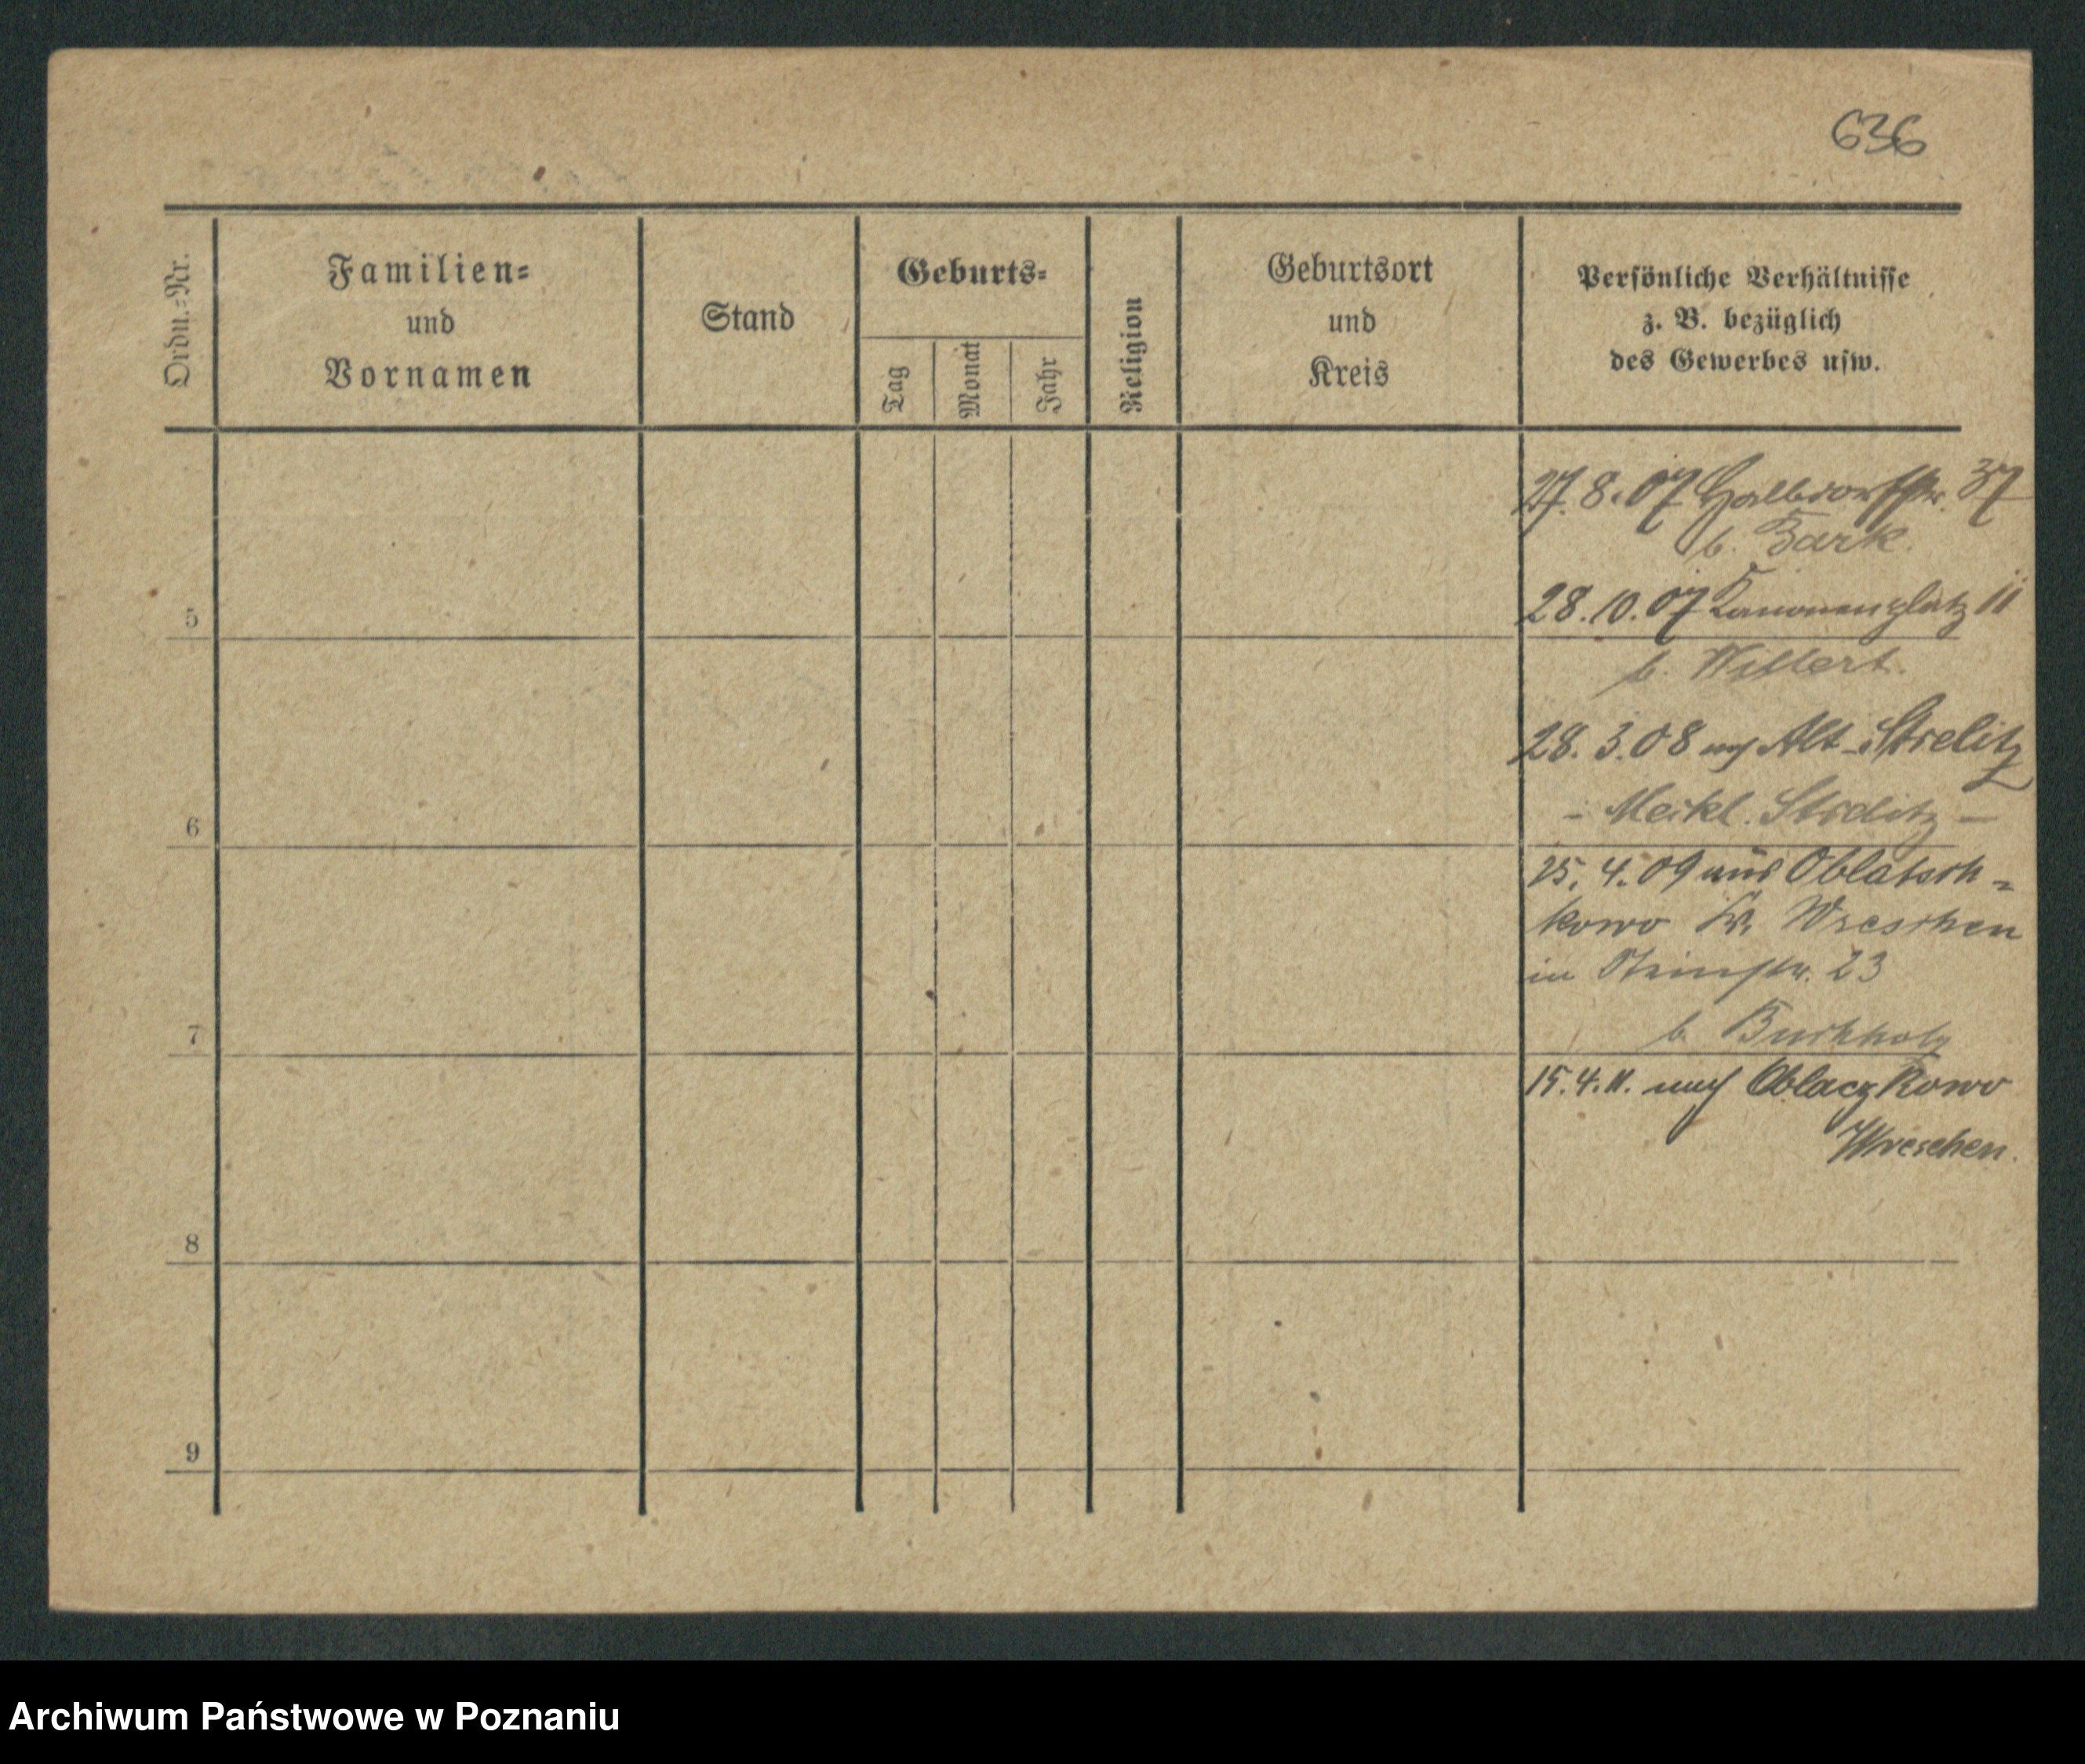 636
Ordn.=Nr.
Familien=
und
Vornamen
Stand
Geburts=
Tag
Monat
Jahr
Religion
Geburtsort
und
Kreis
Persönliche Verhältnisse
z. B. bezüglich
des Gewerbes usw.
27.8.07 Halbdorfstr. 37
b. Bark.
5
28.10.07 Kanonenplatz 11
b. Willert.
28.3.08 nach Alt-Strelitz
- Meckl. Strelitz -
6
25.4.09 aus Oblatsch=
kowo Kr. Wreschen
in 23
b. Buchholz
7
15.4.11. nach Oblaczkowo
Wreschen.
8
9
Archiwum Państwowe w Poznaniu